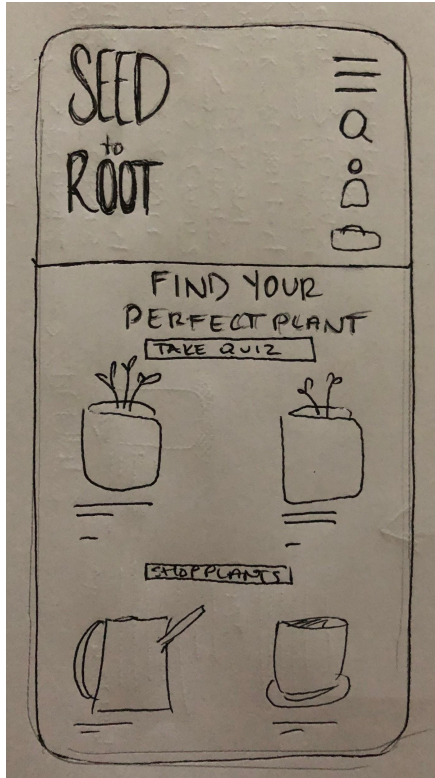 SEED
to
ROOT
FIND YOUR
PERFECT PLANT
TAKE QUIZ
SHOP PLANTS